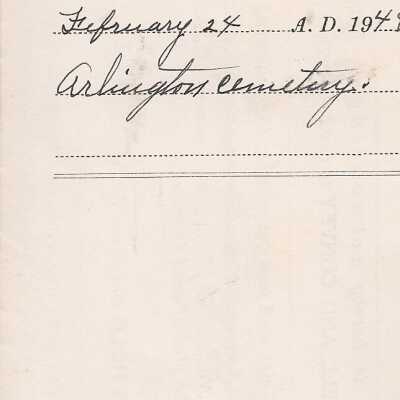 February 24 A. D. 194
Arlington cemetery.